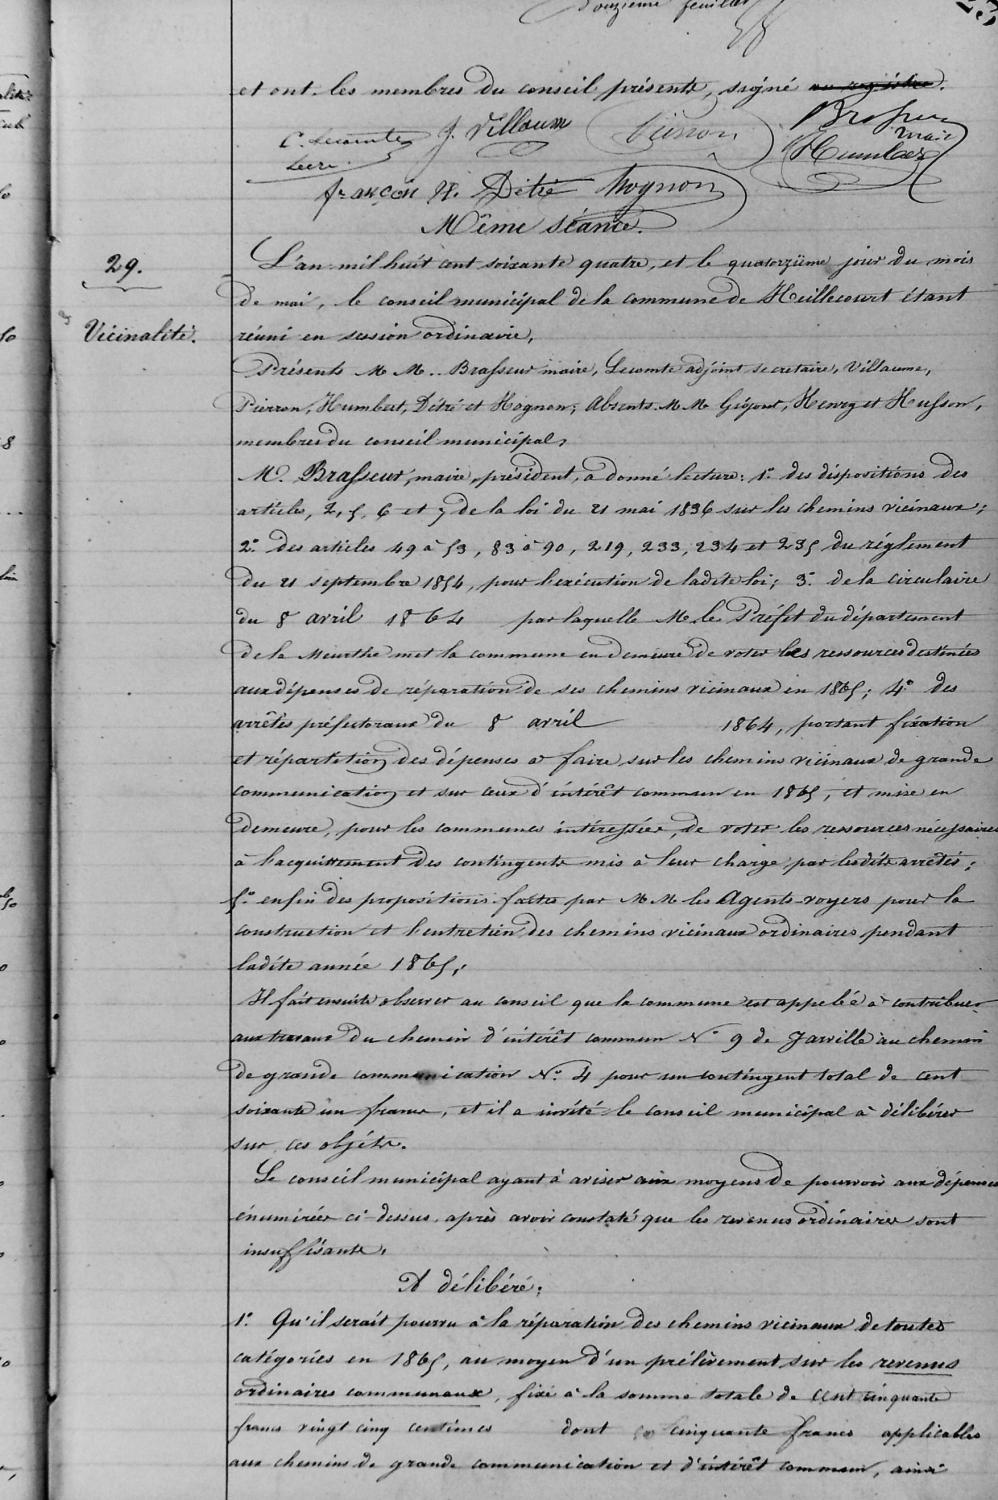 Douzième feuillet
et ont les membres du conseil présents, signé au registre.
C. Lecomte J. Villaume Pierron Brasseur
Secre. maire Humbert
françois N. Détré Hognon
Même séance.
29.
Vicinalité.
L'an mil huit cent soixante quatre, et le quatorzième jour du mois
de mai, le conseil municipal de la commune de Heillecourt étant
réuni en session ordinaire,
Présents M M. Brasseur maire, Lecomte adjoint secretaire, Villaume,
Pierron, Humbert, Détré et Hognon; Absents M M Gigout, Henry et Husson,
membres du conseil municipal,
Mr. Brasseur, maire, président, a donné lecture: 1° des dispositions des
articles, 2, 5, 6 et 7 de la loi du 21 mai 1836 sur les chemins vicinaux;
2° des articles 49 à 53, 83 à 90, 219, 233, 234 et 235 du réglement
du 21 septembre 1854, pour l'exécution de ladite loi; 3° de la circulaire
du 8 avril 1864 par laquelle M. le Préfet du département
de la Meurthe met la commune en demeure de voter les ressources destinées
aux dépenses de réparation de ses chemins vicinaux en 1865; 4° des
arrêtés préfectoraux du 8 avril 1864, portant fixation
et répartition des dépenses à faire sur les chemins vicinaux de grande
communication et sur ceux d'intérêt commun en 1865, et mise en
demeure, pour les communes intéressées, de voter les ressources nécessaires
à l'acquittement des contingents mis à leur charge par lesdits arrêtés;
5° enfin des propositions faites par M M les Agents-voyers pour la
construction et l'entretien des chemins vicinaux ordinaires pendant
ladite année 1865;
Il fait ensuite observer au conseil que la commune est appelée à contribuer
aux travaux du chemin d'intérêt commun N° 9 de Jarville au chemin
de grande communication N° 4 pour un contingent total de cent
soixante un francs, et il a invité le conseil municipal à délibérer
sur ces objéts.
Le conseil municipal ayant à aviser aux moyens de pourvoir aux dépenses
énumérées ci-dessus, après avoir constaté que les revenus ordinaires sont
insuffisants,
A délibéré:
1° Qu'il serait pourvu à la réparation des chemins vicinaux de toutes
catégories en 1865, au moyen d'un prélèvement sur les revenus
ordinaires communaux, fixé à la somme totale de cent cinquante
francs vingt cinq centimes dont cinquante francs applicables
aux chemins de grande communication et d'intérêt commun, ainsi